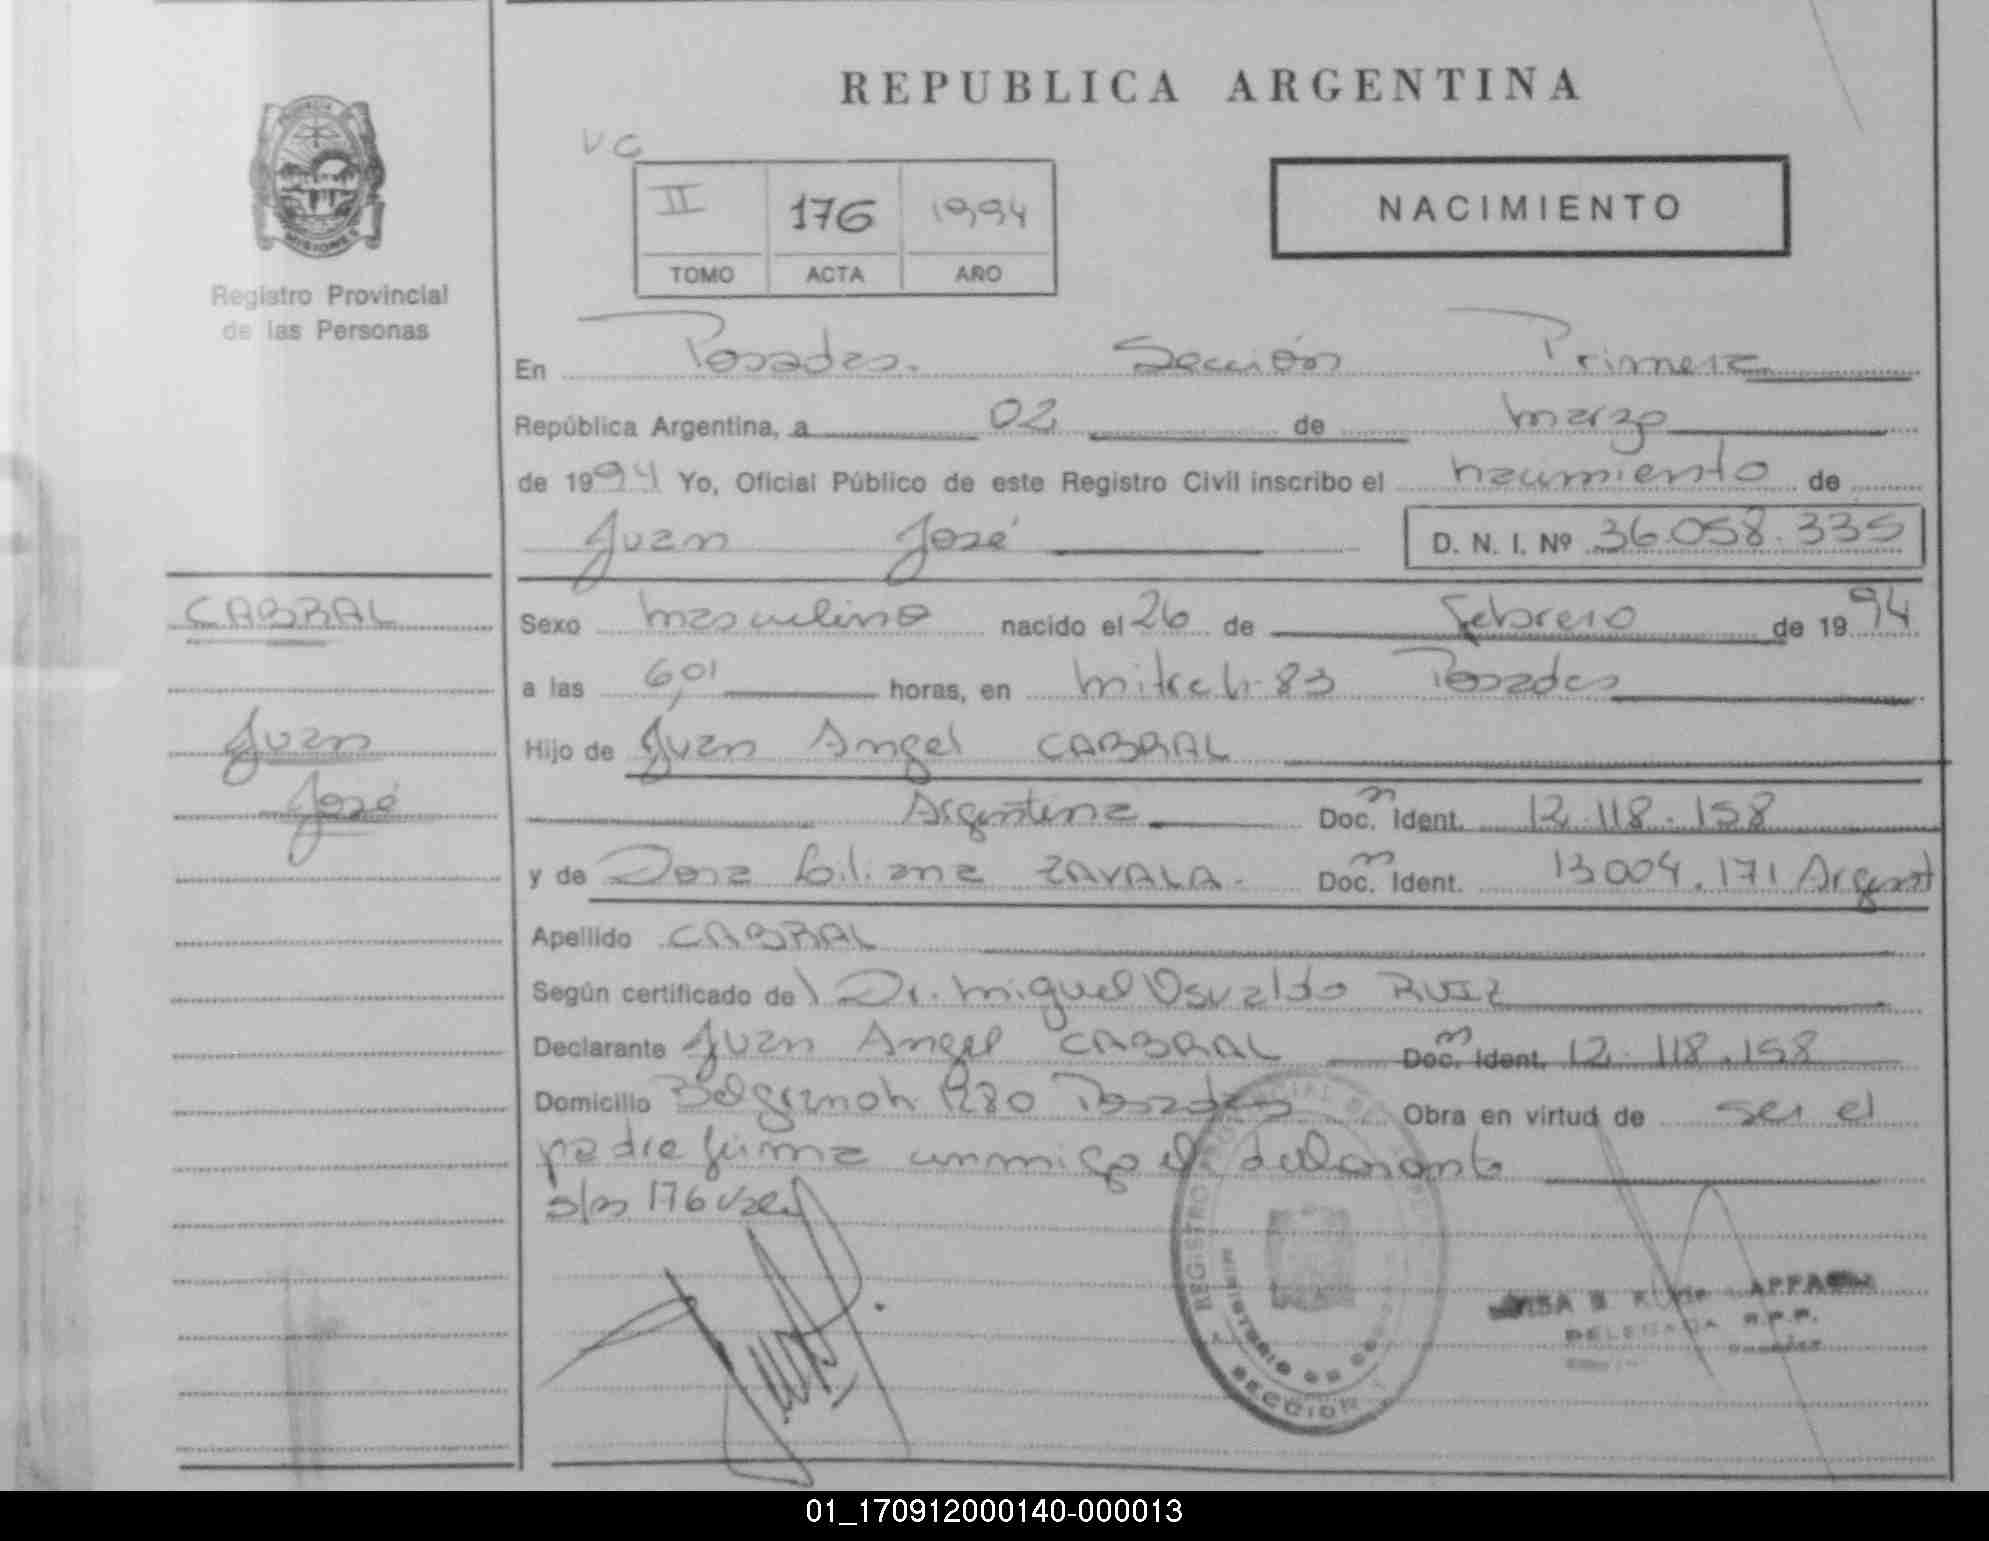 REPUBLICA ARGENTINA
VC
II 176 1994
TOMO ACTA AÑO
NACIMIENTO
MISIONES
Registro Provincial
de las Personas
En Posadas. Sección Primera
República Argentina, a 02 de marzo
de 1994 Yo, Oficial Público de este Registro Civil inscribo el nacimiento de
Juan José D. N. I. Nº 36.058.335
CABRAL
Juan
José
Sexo masculino nacido el 26 de Febrero de 1994
a las 6,01 horas, en Mitre 83 Posadas
Hijo de Juan Angel CABRAL
Argentina Doc. Ident. 12.118.158
y de Dora Liliana ZAVALA. Doc. Ident. 13.004.171 Argent
Apellido CABRAL
Según certificado del Dr. Miguel Osvaldo RUIZ
Declarante Juan Angel CABRAL Doc. Ident. 12.118.158
Domicilio Belgrano 1280 Posadas Obra en virtud de ser el
padre firma conmigo el declarante
176 vale
REGISTRO
MINISTERIO DE
SECCION 1
DELEGADA R.P.P.
01_170912000140-000013